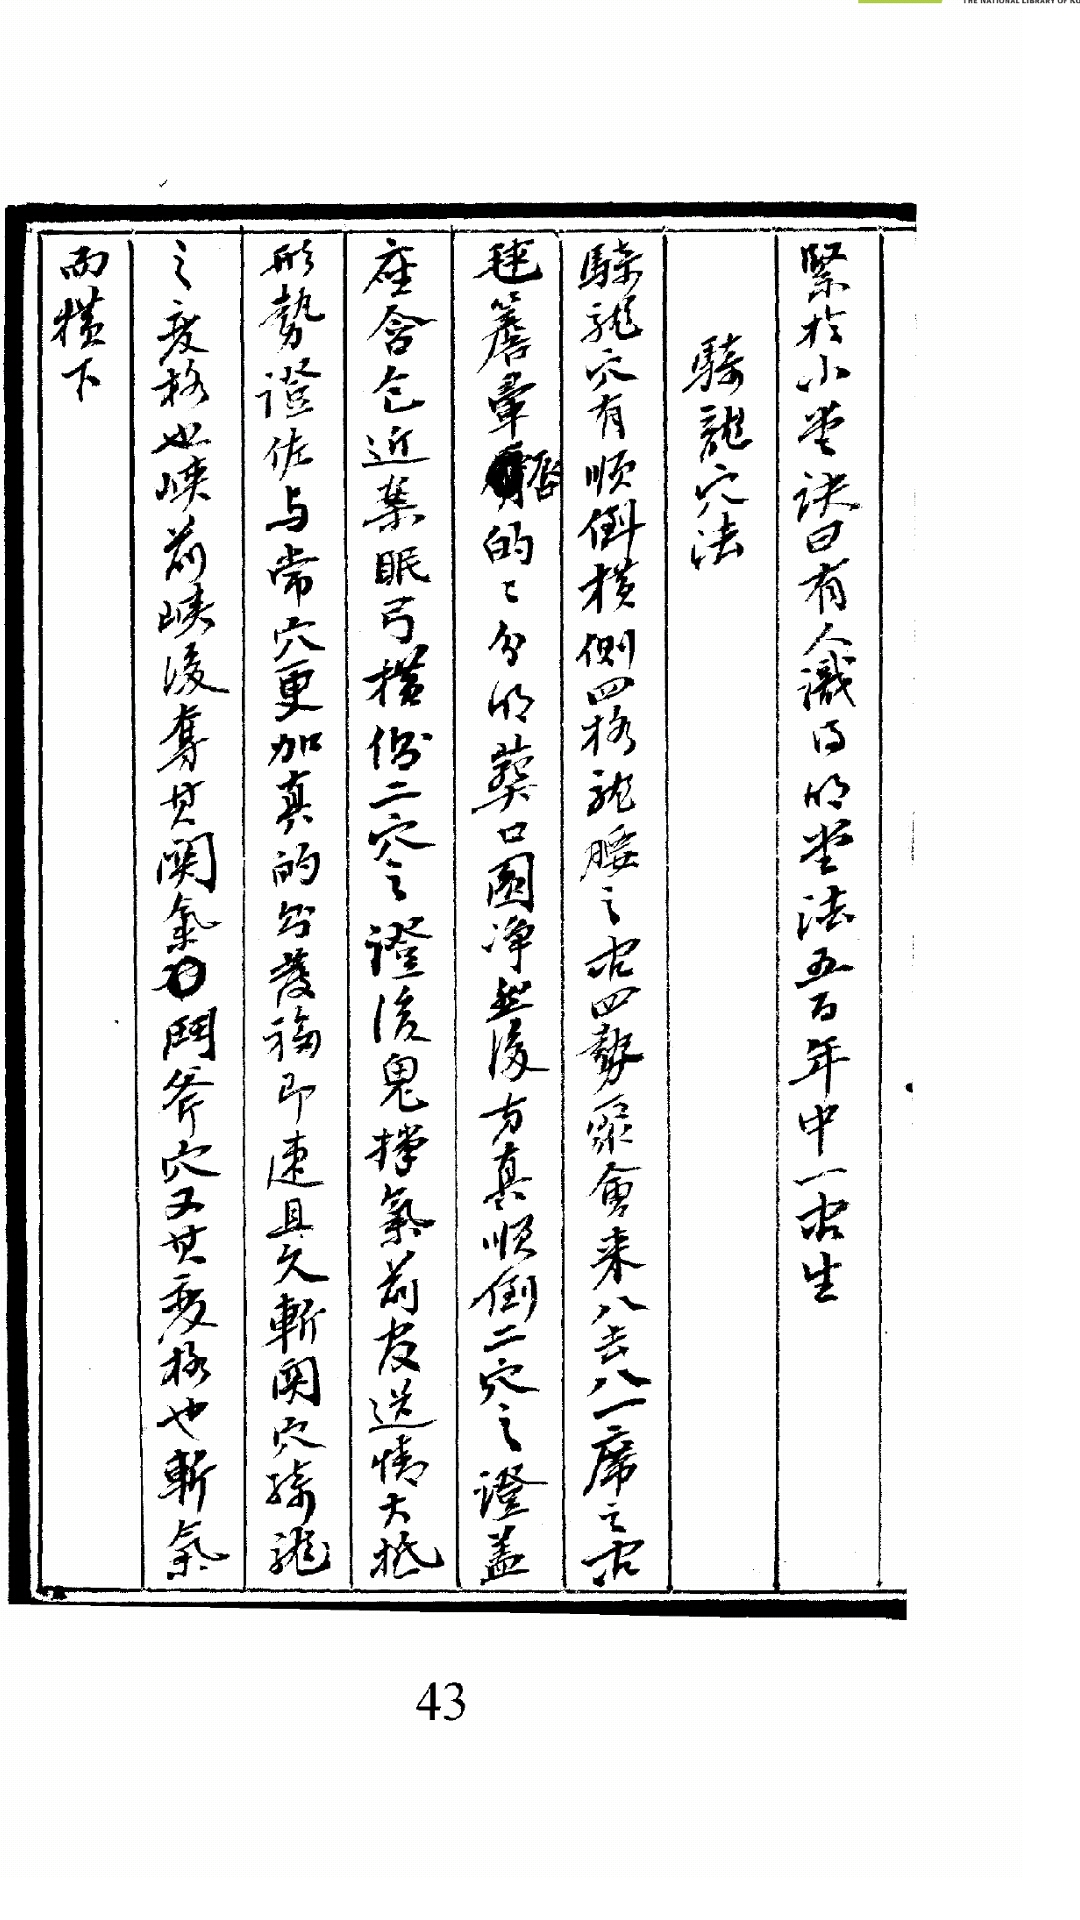 THE NATIONAL LIBRARY OF KO
緊於小堂訣曰有人識得明堂法五百年中一間生
騎龍穴法
騎龍穴有順倒橫側四格龍腰之穴四勢聚會来八去八一席之穴
毬簷暈唇的〻分明葬口圓净然後方真順倒二穴之證盖
座含包近案眠弓橫側二穴之證後鬼撑氣前官送情大抵
形勢證佐与常穴更加真的則發福即速且久斬関穴騎龍
之変格也峽前峽後奪其関氣鬥斧穴又其変格也斬氣
而橫下
43